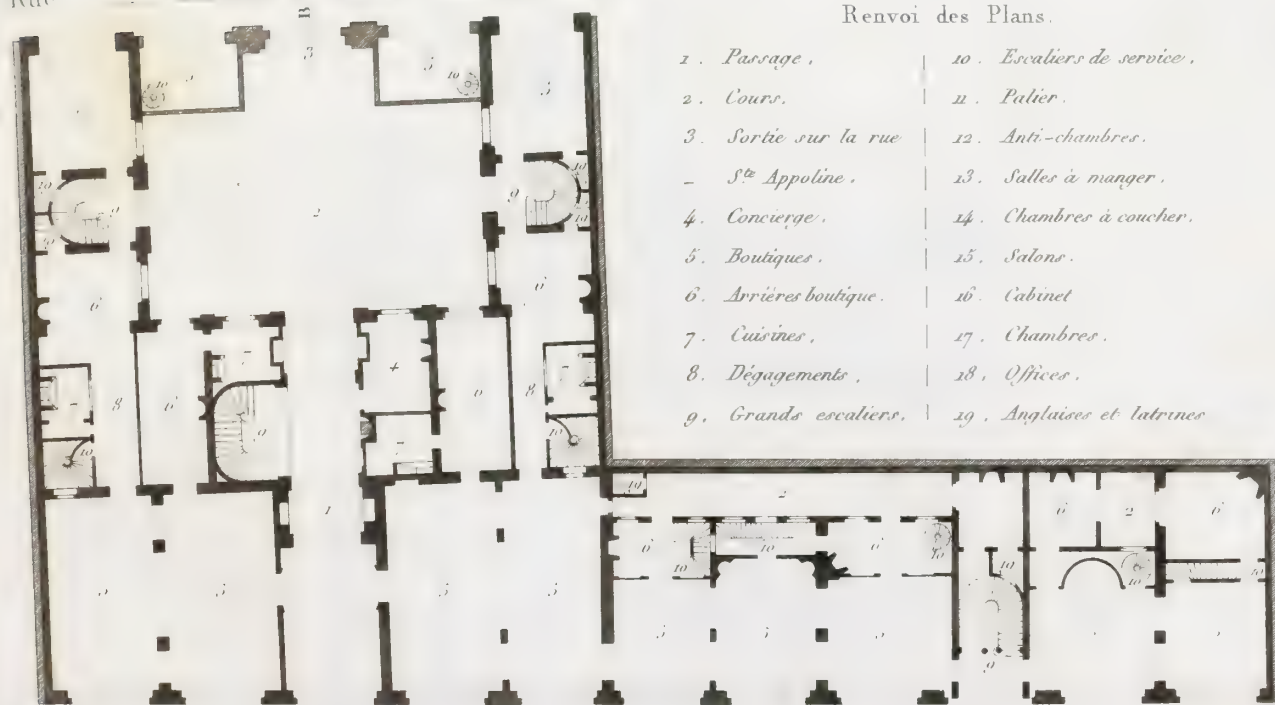 Rue
B
Renvoi des Plans.
1. Passage.
2. Cours.
3. Sortie sur la rue
- Ste Appoline.
4. Concierge.
5. Boutiques.
6. Arriéres boutique.
7. Cuisines.
8. Dégagements.
9. Grands escaliers.
10. Escaliers de service.
11. Palier.
12. Anti-chambres.
13. Salles à manger.
14. Chambres à coucher.
15. Salons.
16. Cabinet
17. Chambres.
18. Offices.
19. Anglaises et latrines
3
10 5 10 5
10 9 2 9 10
6 6
7 4
8 6 9 6 8
10 7 10
19 2 6 2 6
1
6 10 10 6 10 10 10 10
5 5 5 5 5 5 5 5
9